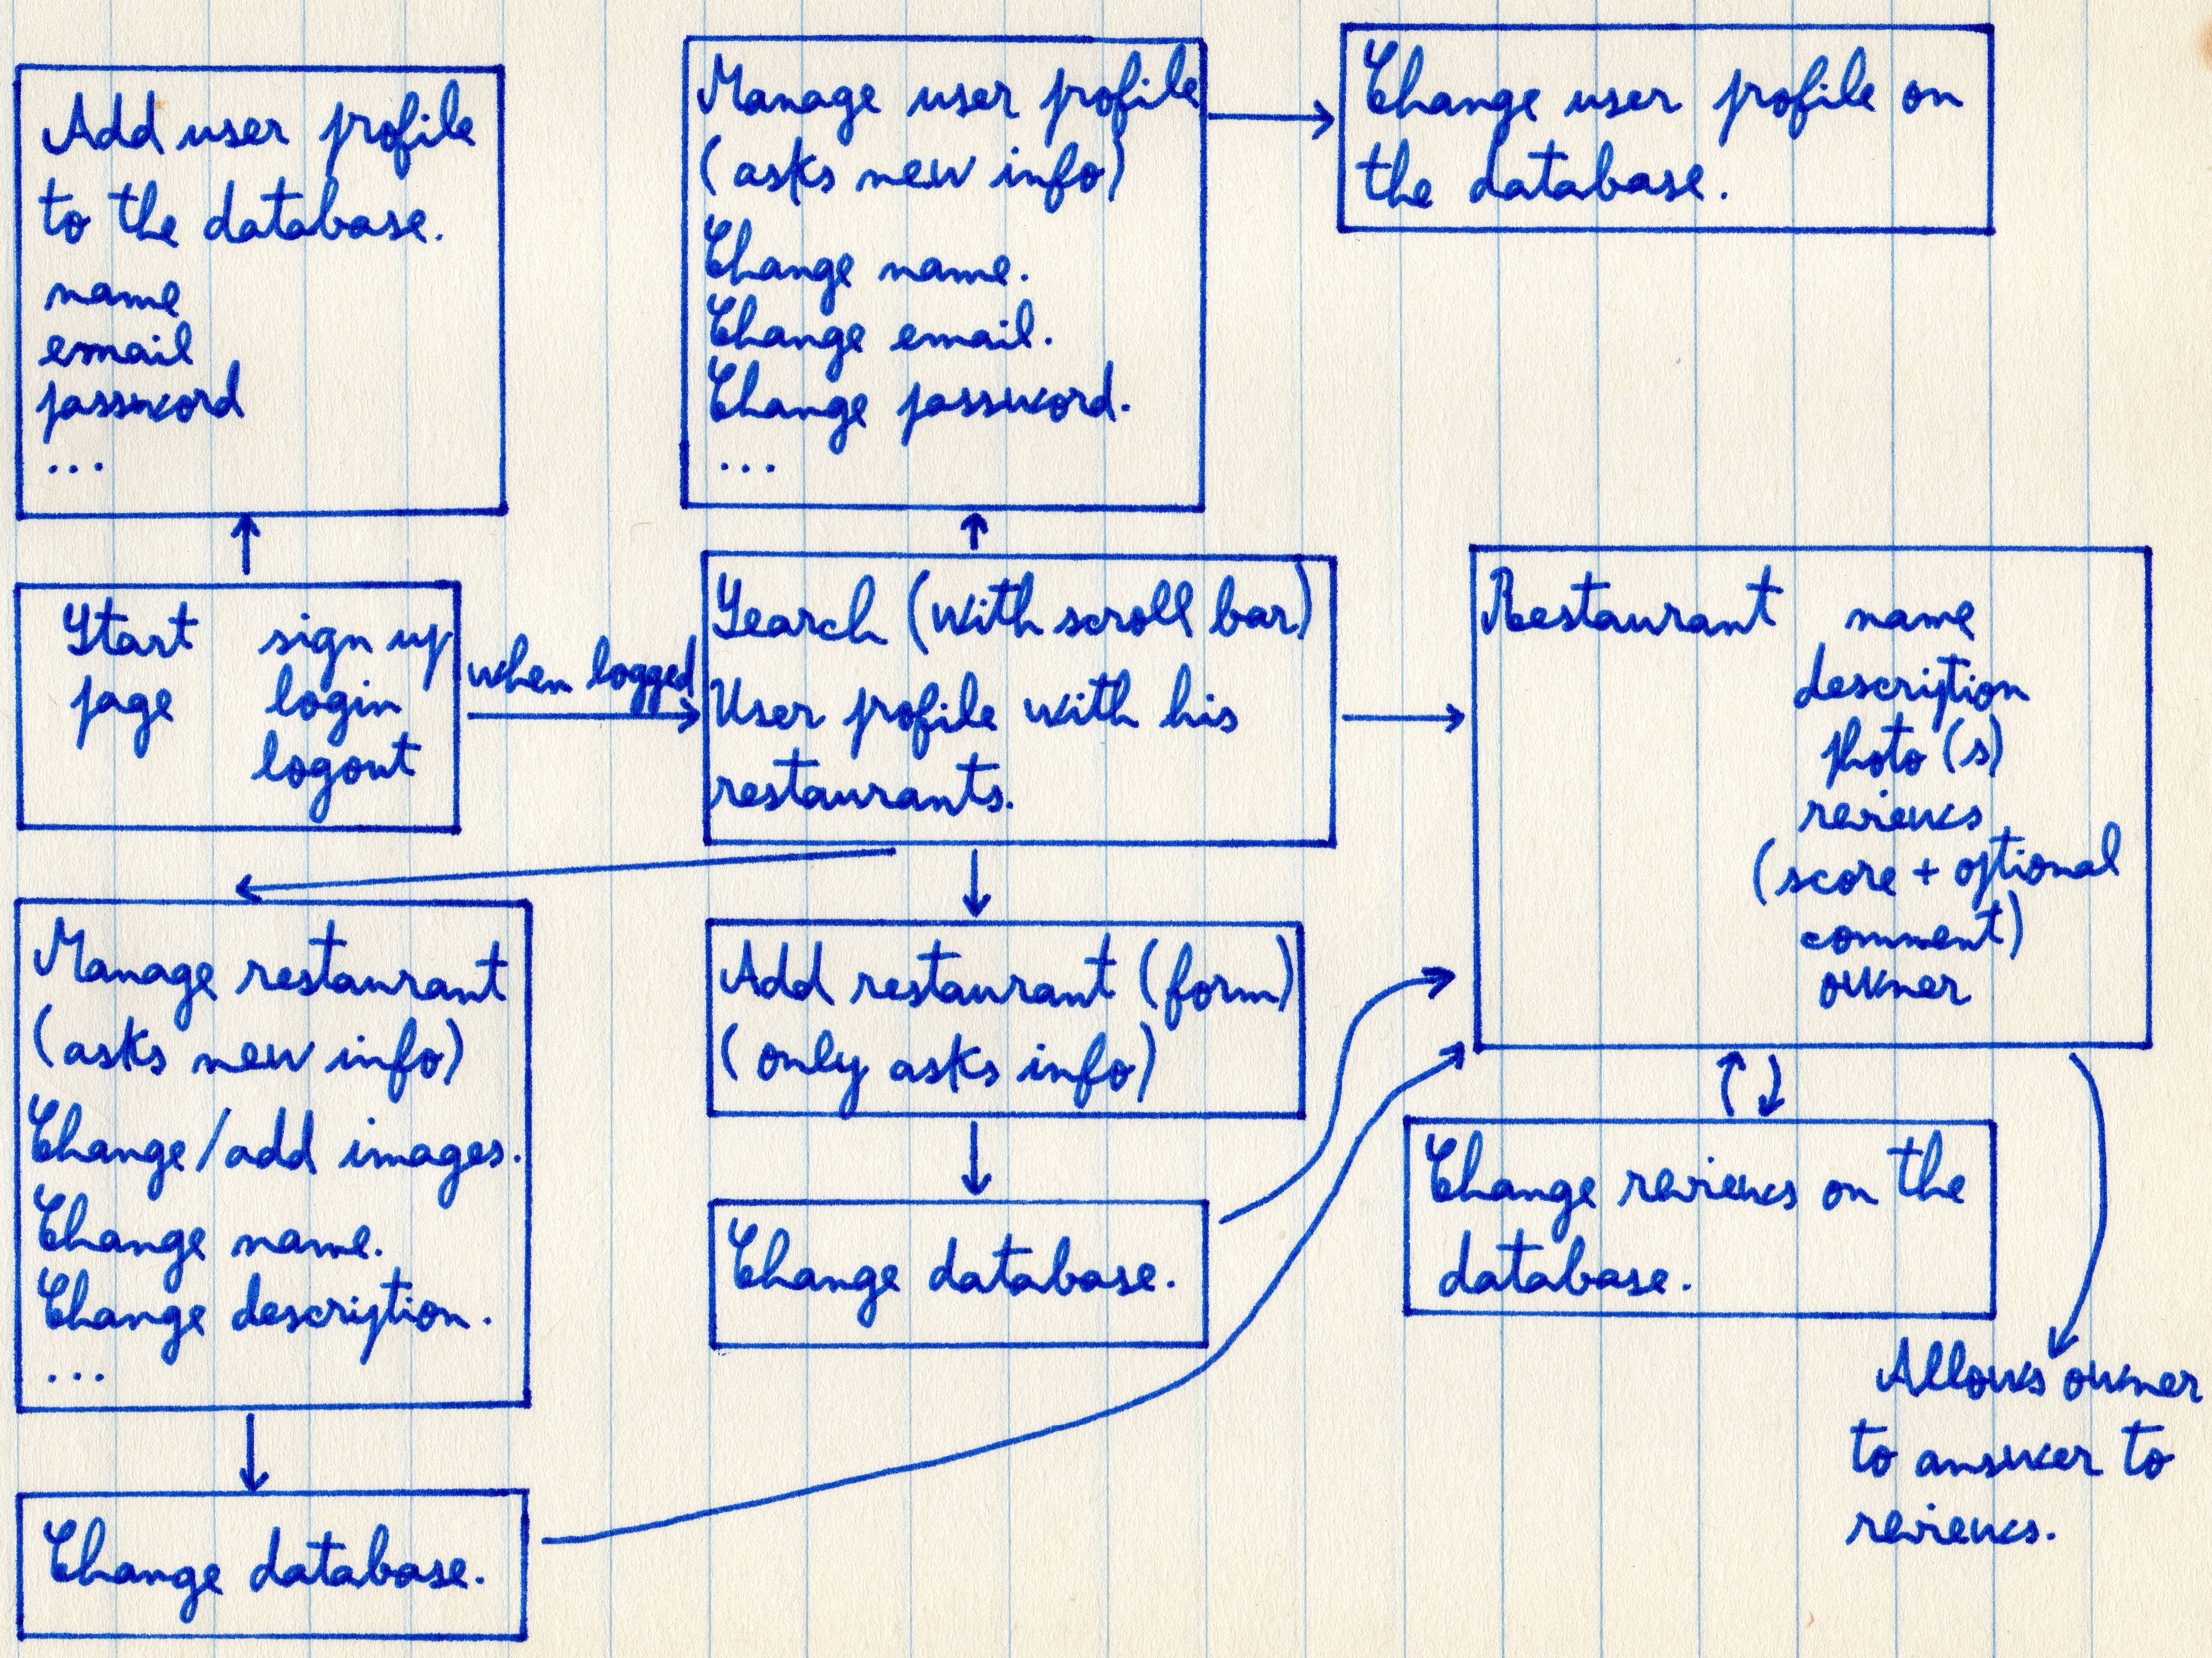 Add user profile
to the database.
name
email
password
...
Manage user profile
(asks new info)
Change name.
Change email.
Change password.
...
Change user profile on
the database.
Start page
sign up
login
logout
when logged
Search (with scroll bar)
User profile with his
restaurants.
Restaurant
name
description
photo(s)
reviews
(score + optional
comment)
owner
Manage restaurant
(asks new info)
Change/add images.
Change name.
Change description.
...
Add restaurant (form)
(only asks info)
Change database.
Change reviews on the
database.
Allows owner
to answer to
reviews.
Change database.